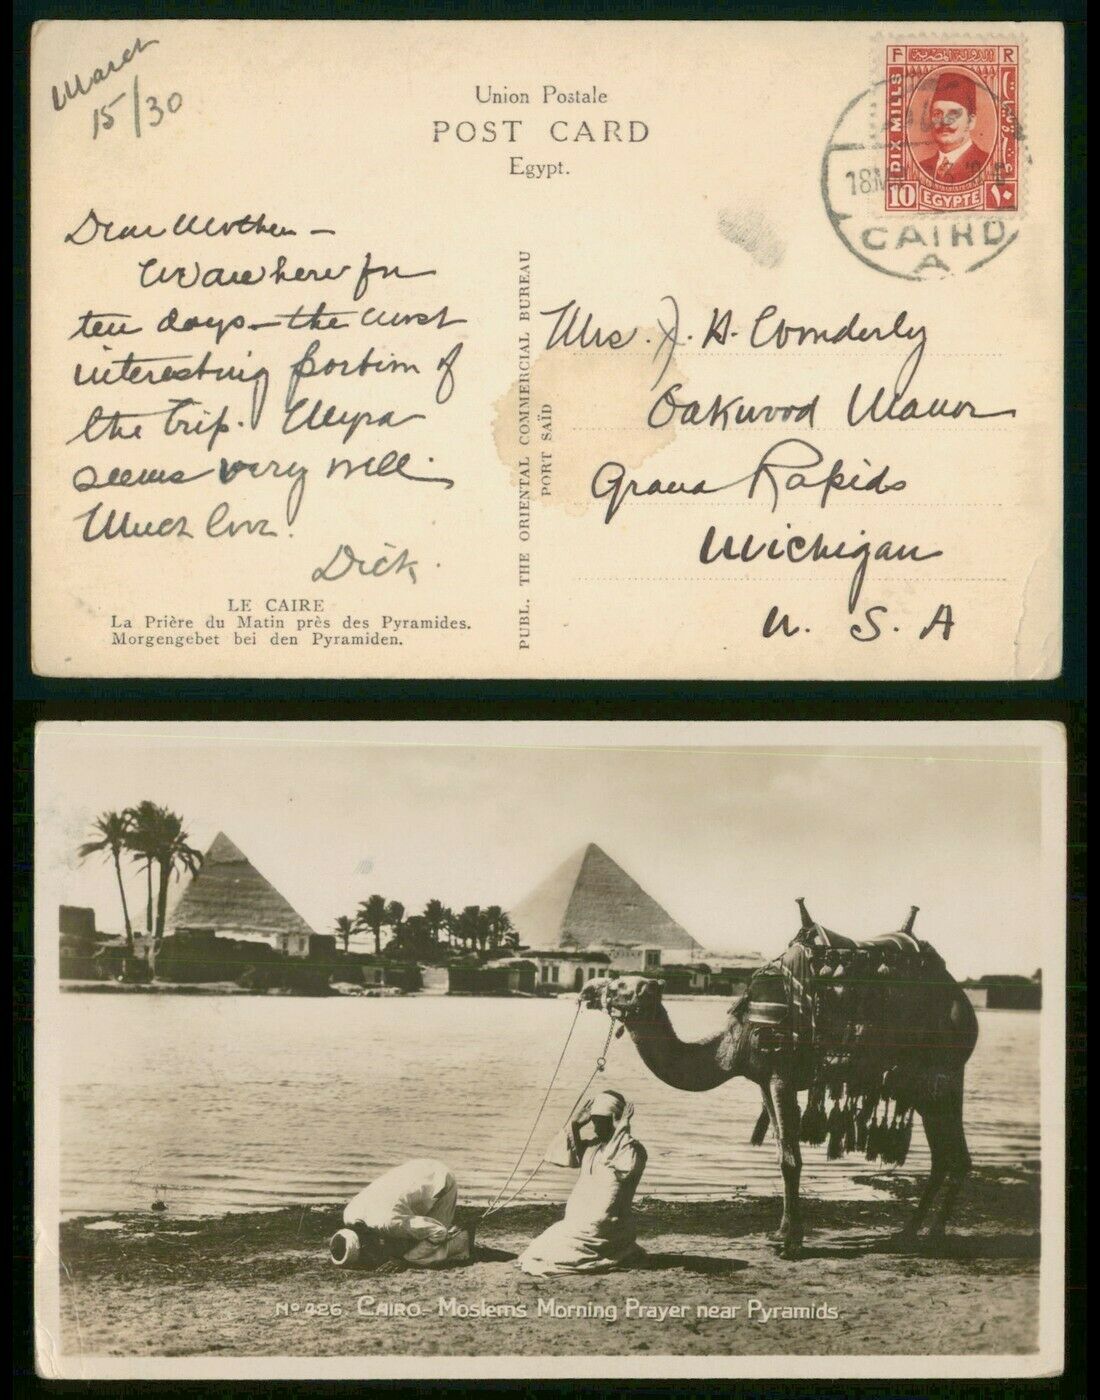 March
15/30
Union Postale
POST CARD
Egypt.
F R
DIX MILLS
10 EGYPTE ١٠
18M
CAIRO
A
Dear Mother –
We are here for
ten days – the most
interesting portion of
the trip. Myra
seems very well.
Much love.
Dick.
LE CAIRE
La Prière du Matin près des Pyramides.
Morgengebet bei den Pyramiden.
PUBL. THE ORIENTAL COMMERCIAL BUREAU
PORT SAÏD
Mrs. J. H. Wonderly
Oakwood Manor
Grand Rapids
Michigan
U. S. A
Nº 426. CAIRO - Moslems Morning Prayer near Pyramids